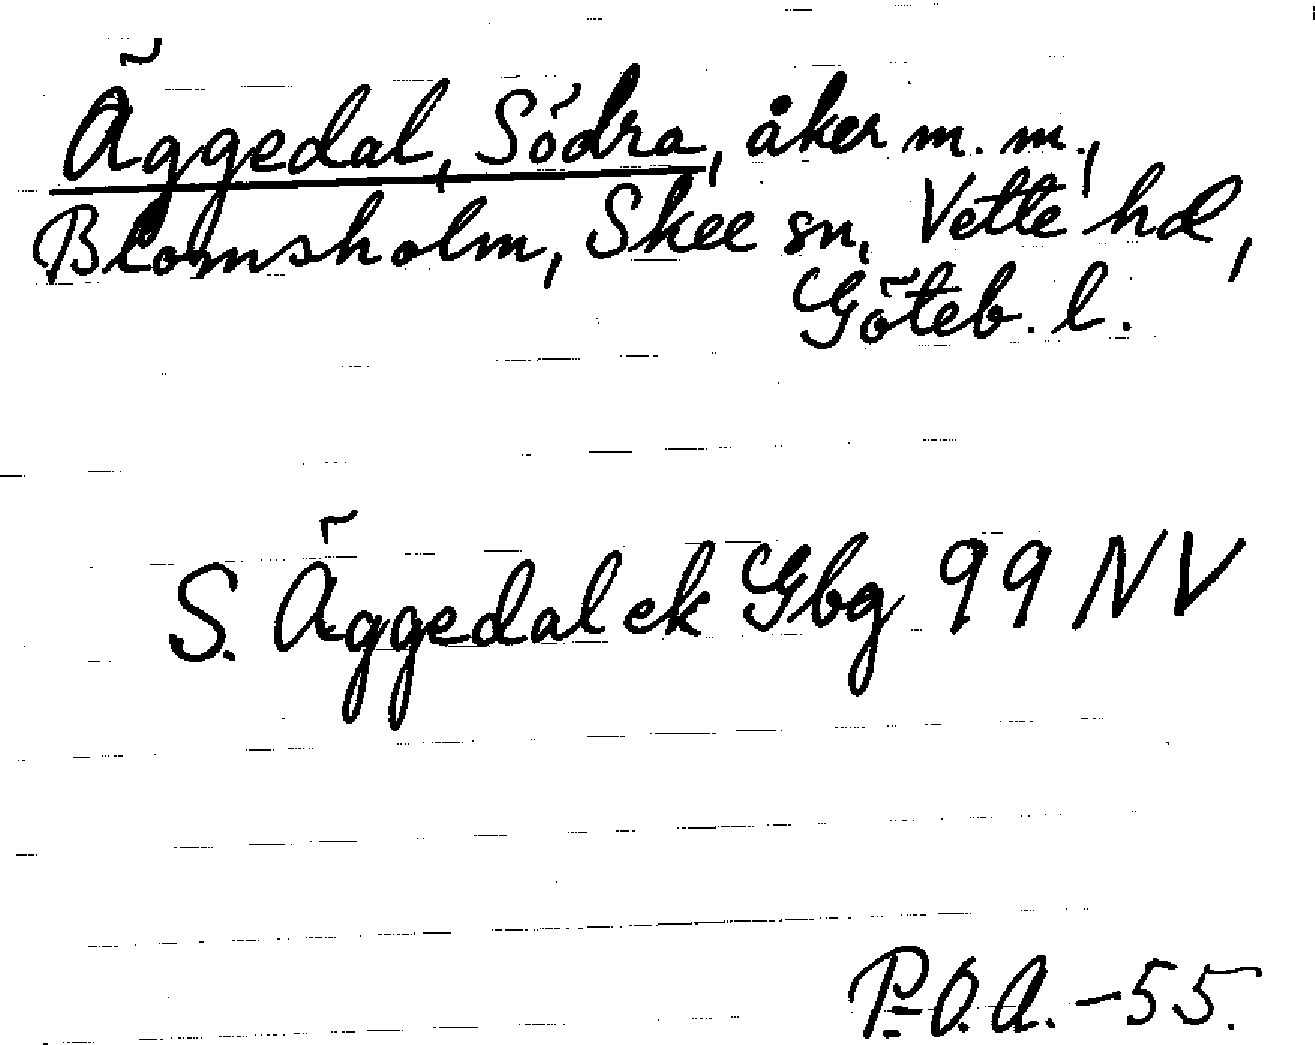 Äggedal, Södra, åker m. m.,
Blomsholm, Skee sn, Vette hd,
Göteb. l.
S. Äggedal ek Gbg 99 NV
P.O.A. -55.